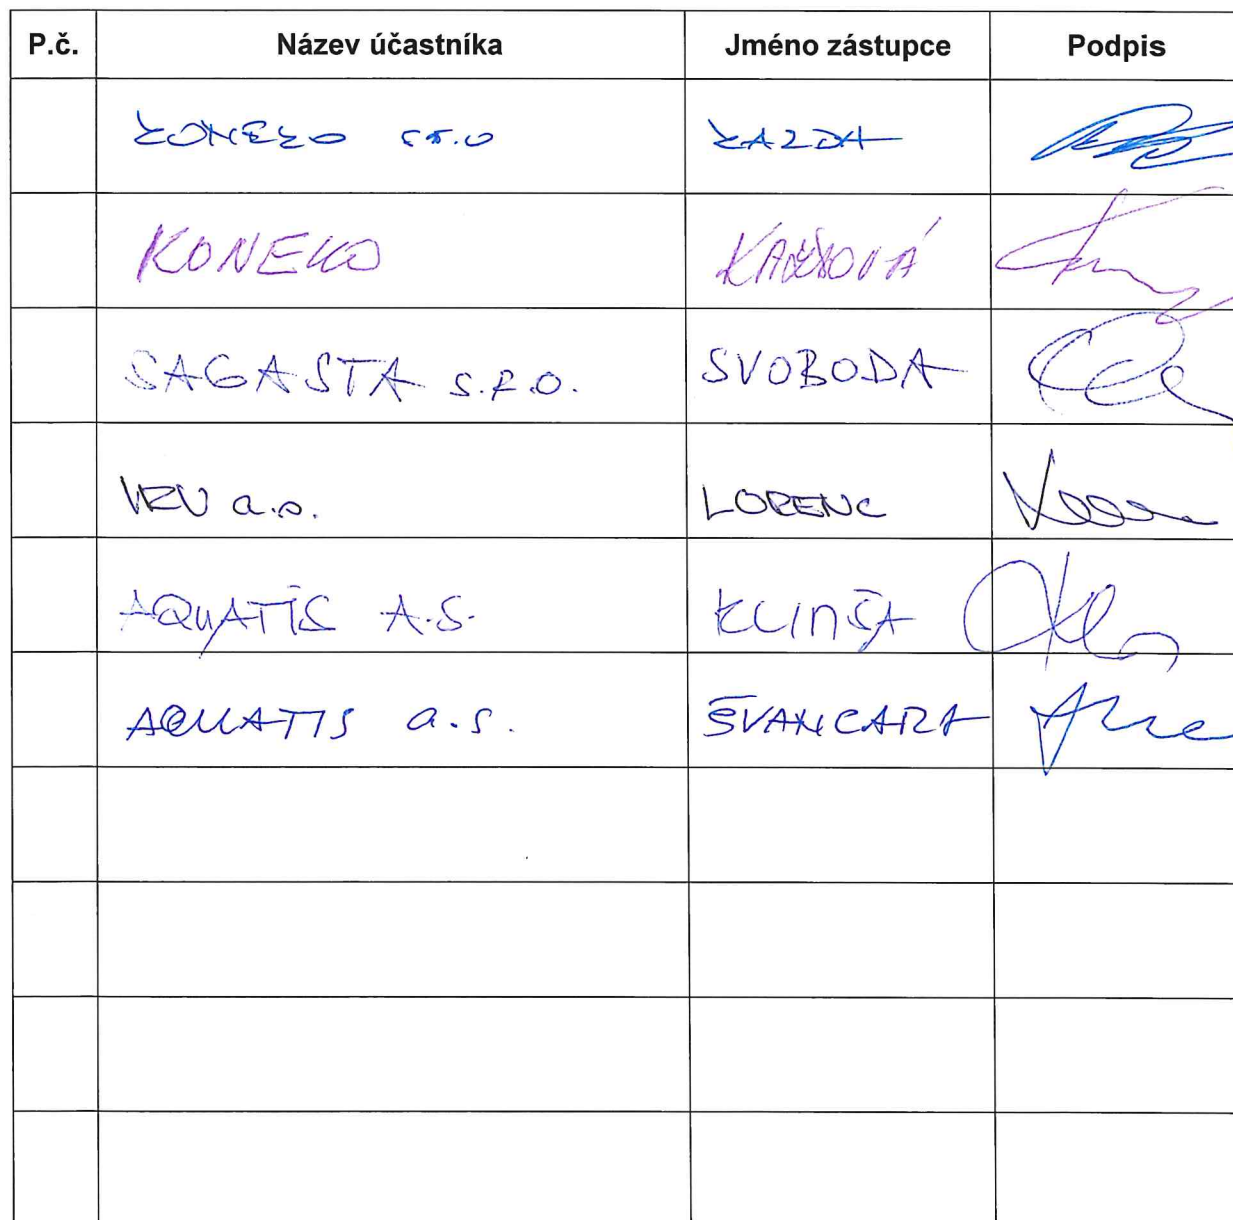 P.č. Název účastníka Jméno zástupce Podpis
KONEKO s.r.o KAZDA
KONEKO
SAGASTA S.R.O. SVOBODA
VRV a.s. LORENC
AQUATIS A.S. KLIMŠA
AQUATIS a.s. ŠVANCARA